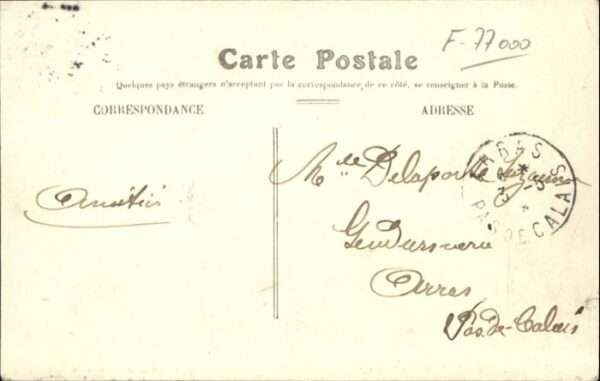 F-77000
Carte Postale
Quelques pays étrangers n'acceptant pas la correspondance de ce côté, se renseigner à la Poste.
CORRESPONDANCE
ADRESSE
Amitiés
Mlle Delaporte Suzanne
Gendarmerie
Arras
Pas-de-Calais
ARRAS
PAS DE CALAIS